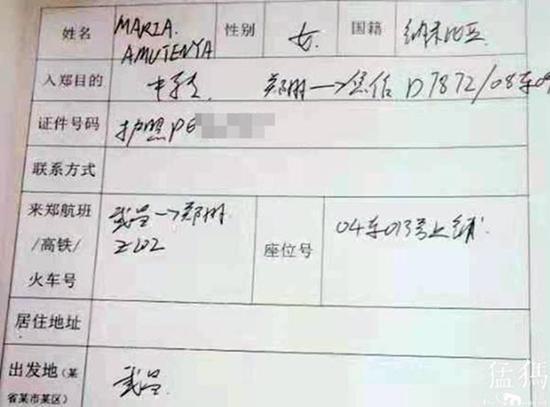 姓名 MARIA. 性别 女. 国籍 纳米比亚
AMUTENYA
入郑目的 中转 郑州→焦作 D7872/08车0
证件号码 护照PE
联系方式
来郑航班 武昌→郑州 座位号 04车013号上铺
/高铁/ Z202
火车号
居住地址
出发地(某 武昌
省某市某区)
猛犸